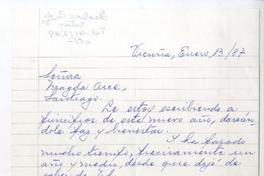 Vicuña, Enero 13/87
Señora
Magda Arce,
Santiago.
Le estoy escribiendo a
principios de este nuevo año, deseán
dole paz y bienestar.
Y ha pasado
mucho tiempo, precisamente un
año y medio, desde que dejé de